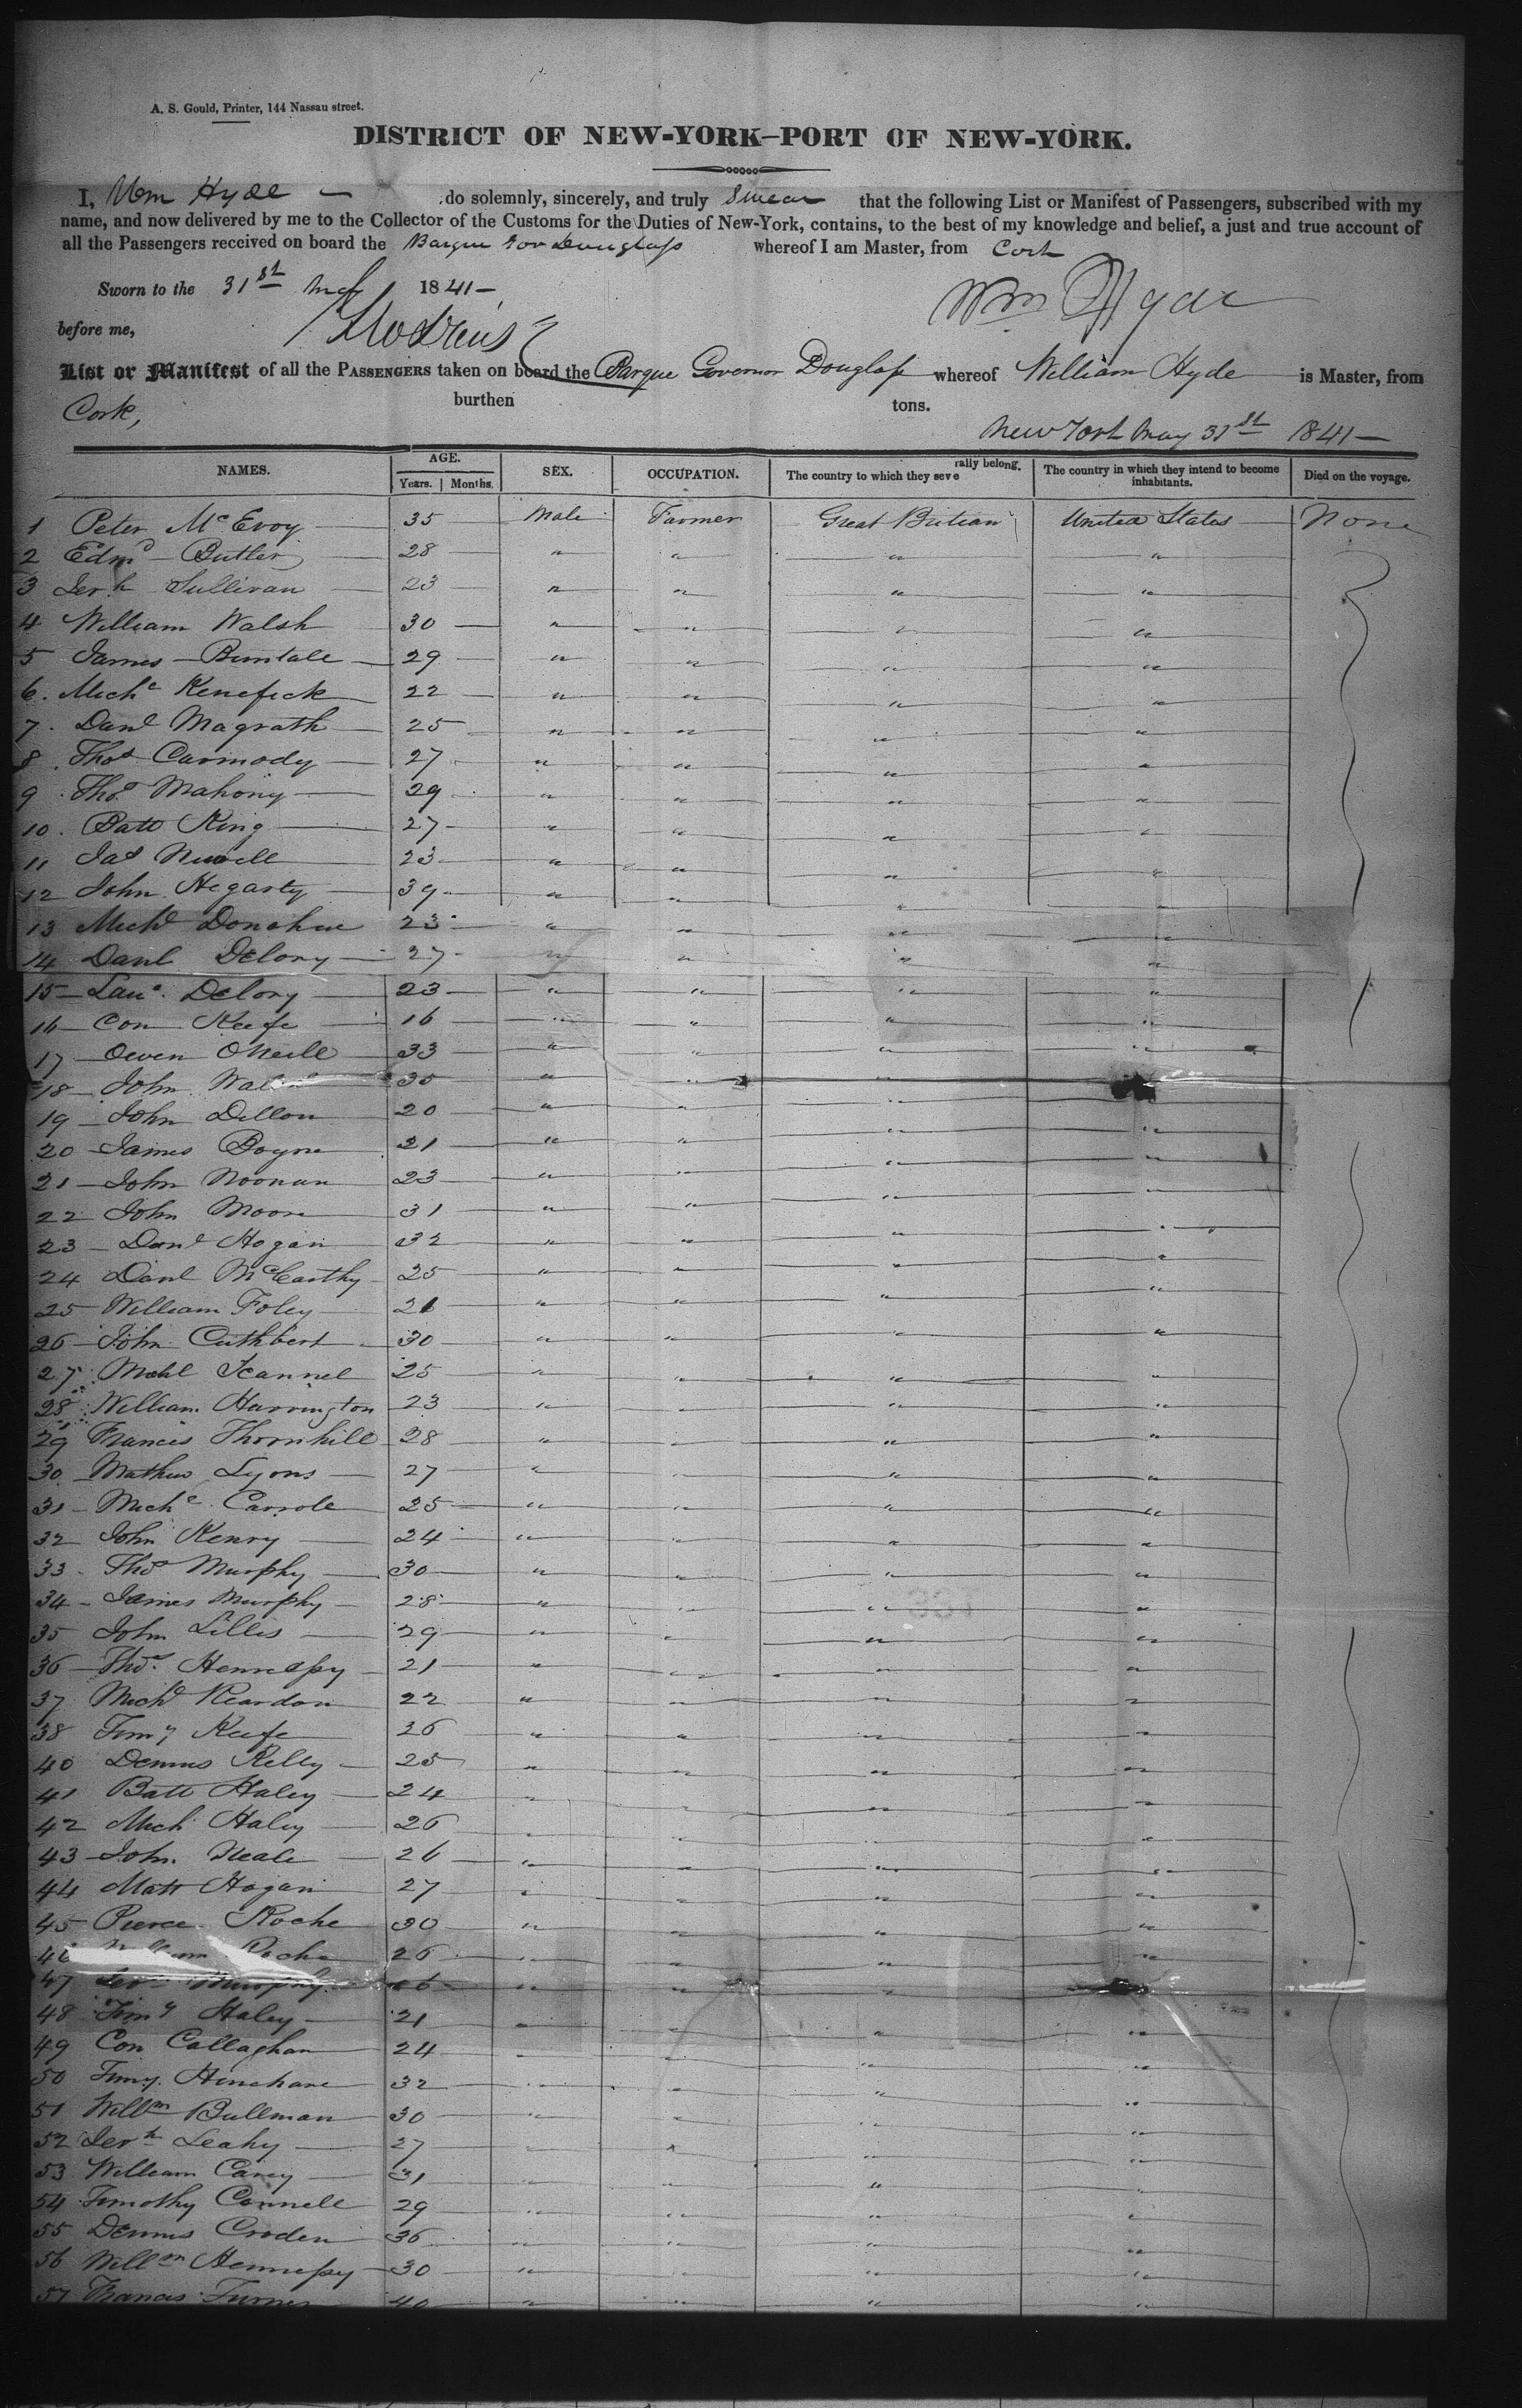 A. S. Gould, Printer, 144 Nassau street.
DISTRICT OF NEW-YORK–PORT OF NEW-YORK.
I, Wm Hyde do solemnly, sincerely, and truly Swear that the following List or Manifest of Passengers, subscribed with my
name, and now delivered by me to the Collector of the Customs for the Duties of New-York, contains, to the best of my knowledge and belief, a just and true account of
all the Passengers received on board the Barque Gov Douglass whereof I am Master, from Cork
Sworn to the 31st May 1841
Wm Hyde
before me,
List or Manifest of all the PASSENGERS taken on board the Barque Governor Douglass whereof William Hyde is Master, from
Cork, burthen tons.
New York May 31st 1841
NAMES. AGE. Years. Months. SEX. OCCUPATION. The country to which they severally belong. The country in which they intend to become inhabitants. Died on the voyage.
1 Peter McEvoy 35 Male Farmer Great Britian United States None
2 Edmd Butler 28 " " " "
3 Jerh Sullivan 23 " " " "
4 William Walsh 30 " " " "
5 James 29 " " " "
6. Michl Kenefick 22 " " " "
7. Danl Magrath 25 " " " "
8. Thos Carmody 27 " " " "
9. Thos Mahony 29 " " " "
10. Patt King 27 " " " "
11 Jas 23 " " " "
12 John Hegarty 39 " " " "
13 Michl Donohue 23 " " " "
14 Danl Delory 27 " " " "
15 Delory 23 " " " "
16 Con Keefe 16 " " " "
17 Owen ONeill 33 " " " "
18 John 35 " " " "
19 John Dillon 20 " " " "
20 James Boyne 21 " " " "
21 John Noonan 23 " " " "
22 John Moore 31 " " " "
23 Danl Hogan 32 " " " "
24 Danl McCarthy 25 " " " "
25 William Foley 21 " " " "
26 John Cuthbert 30 " " " "
27 Michl 25 " " " "
28 William Harrington 23 " " " "
29 Francis Thornhill 28 " " " "
30 Mathew Lyons 27 " " " "
31 Michl Carrole 25 " " " "
32 John Kenry 24 " " " "
33 Thos Murphy 30 " " " "
34 James Murphy 28 " " " "
35 John Lillis 29 " " " "
36 Thos Hennessy 21 " " " "
37 Michl Reardon 22 " " " "
38 Timy Keefe 26 " " " "
40 Dennis Kelly 25 " " " "
41 Batt Haley 24 " " " "
42 Mich Haley 26 " " " "
43 John Neale 26 " " " "
44 Matt Hogan 27 " " " "
45 Pierce Roche 30 " " " "
46 William Roche 26 " " " "
47 Murphy " " " "
48 Timy Haley 21 " " " "
49 Con Callaghan 24 " " " "
50 Timy. 32 " " " "
51 Willm Bullman 30 " " " "
52 Jerh Leahy 27 " " " "
53 William Carey 31 " " " "
54 Timothy Connell 29 " " " "
55 Dennis Croden 36 " " " "
56 Willm Hennessy 30 " " " "
57 Francis Turner 40 " " " "